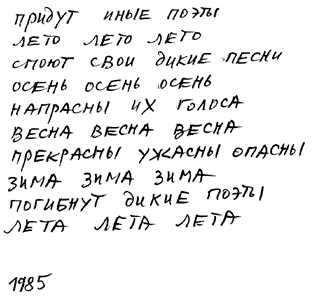 придут иные поэты
лето лето лето
споют свои дикие песни
осень осень осень
напрасны их голоса
весна весна весна
прекрасны ужасны опасны
зима зима зима
погибнут дикие поэты
лета лета лета
1985